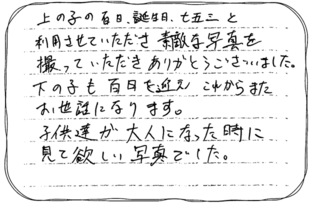 上の子の百日、誕生日、七五三と
利用させていただき素敵な写真を
撮っていただきありがとうございました。
下の子も百日を迎え これからまた
お世話になります。
子供達が大人になった時に
見て欲しい写真でした。